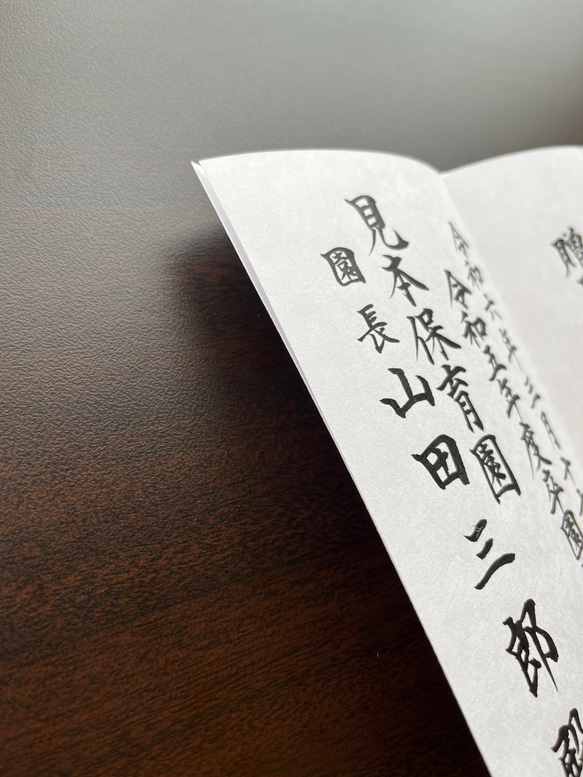 贈
令和六年三月十
令和五年度卒園
見本保育園
園長山田三郎殿